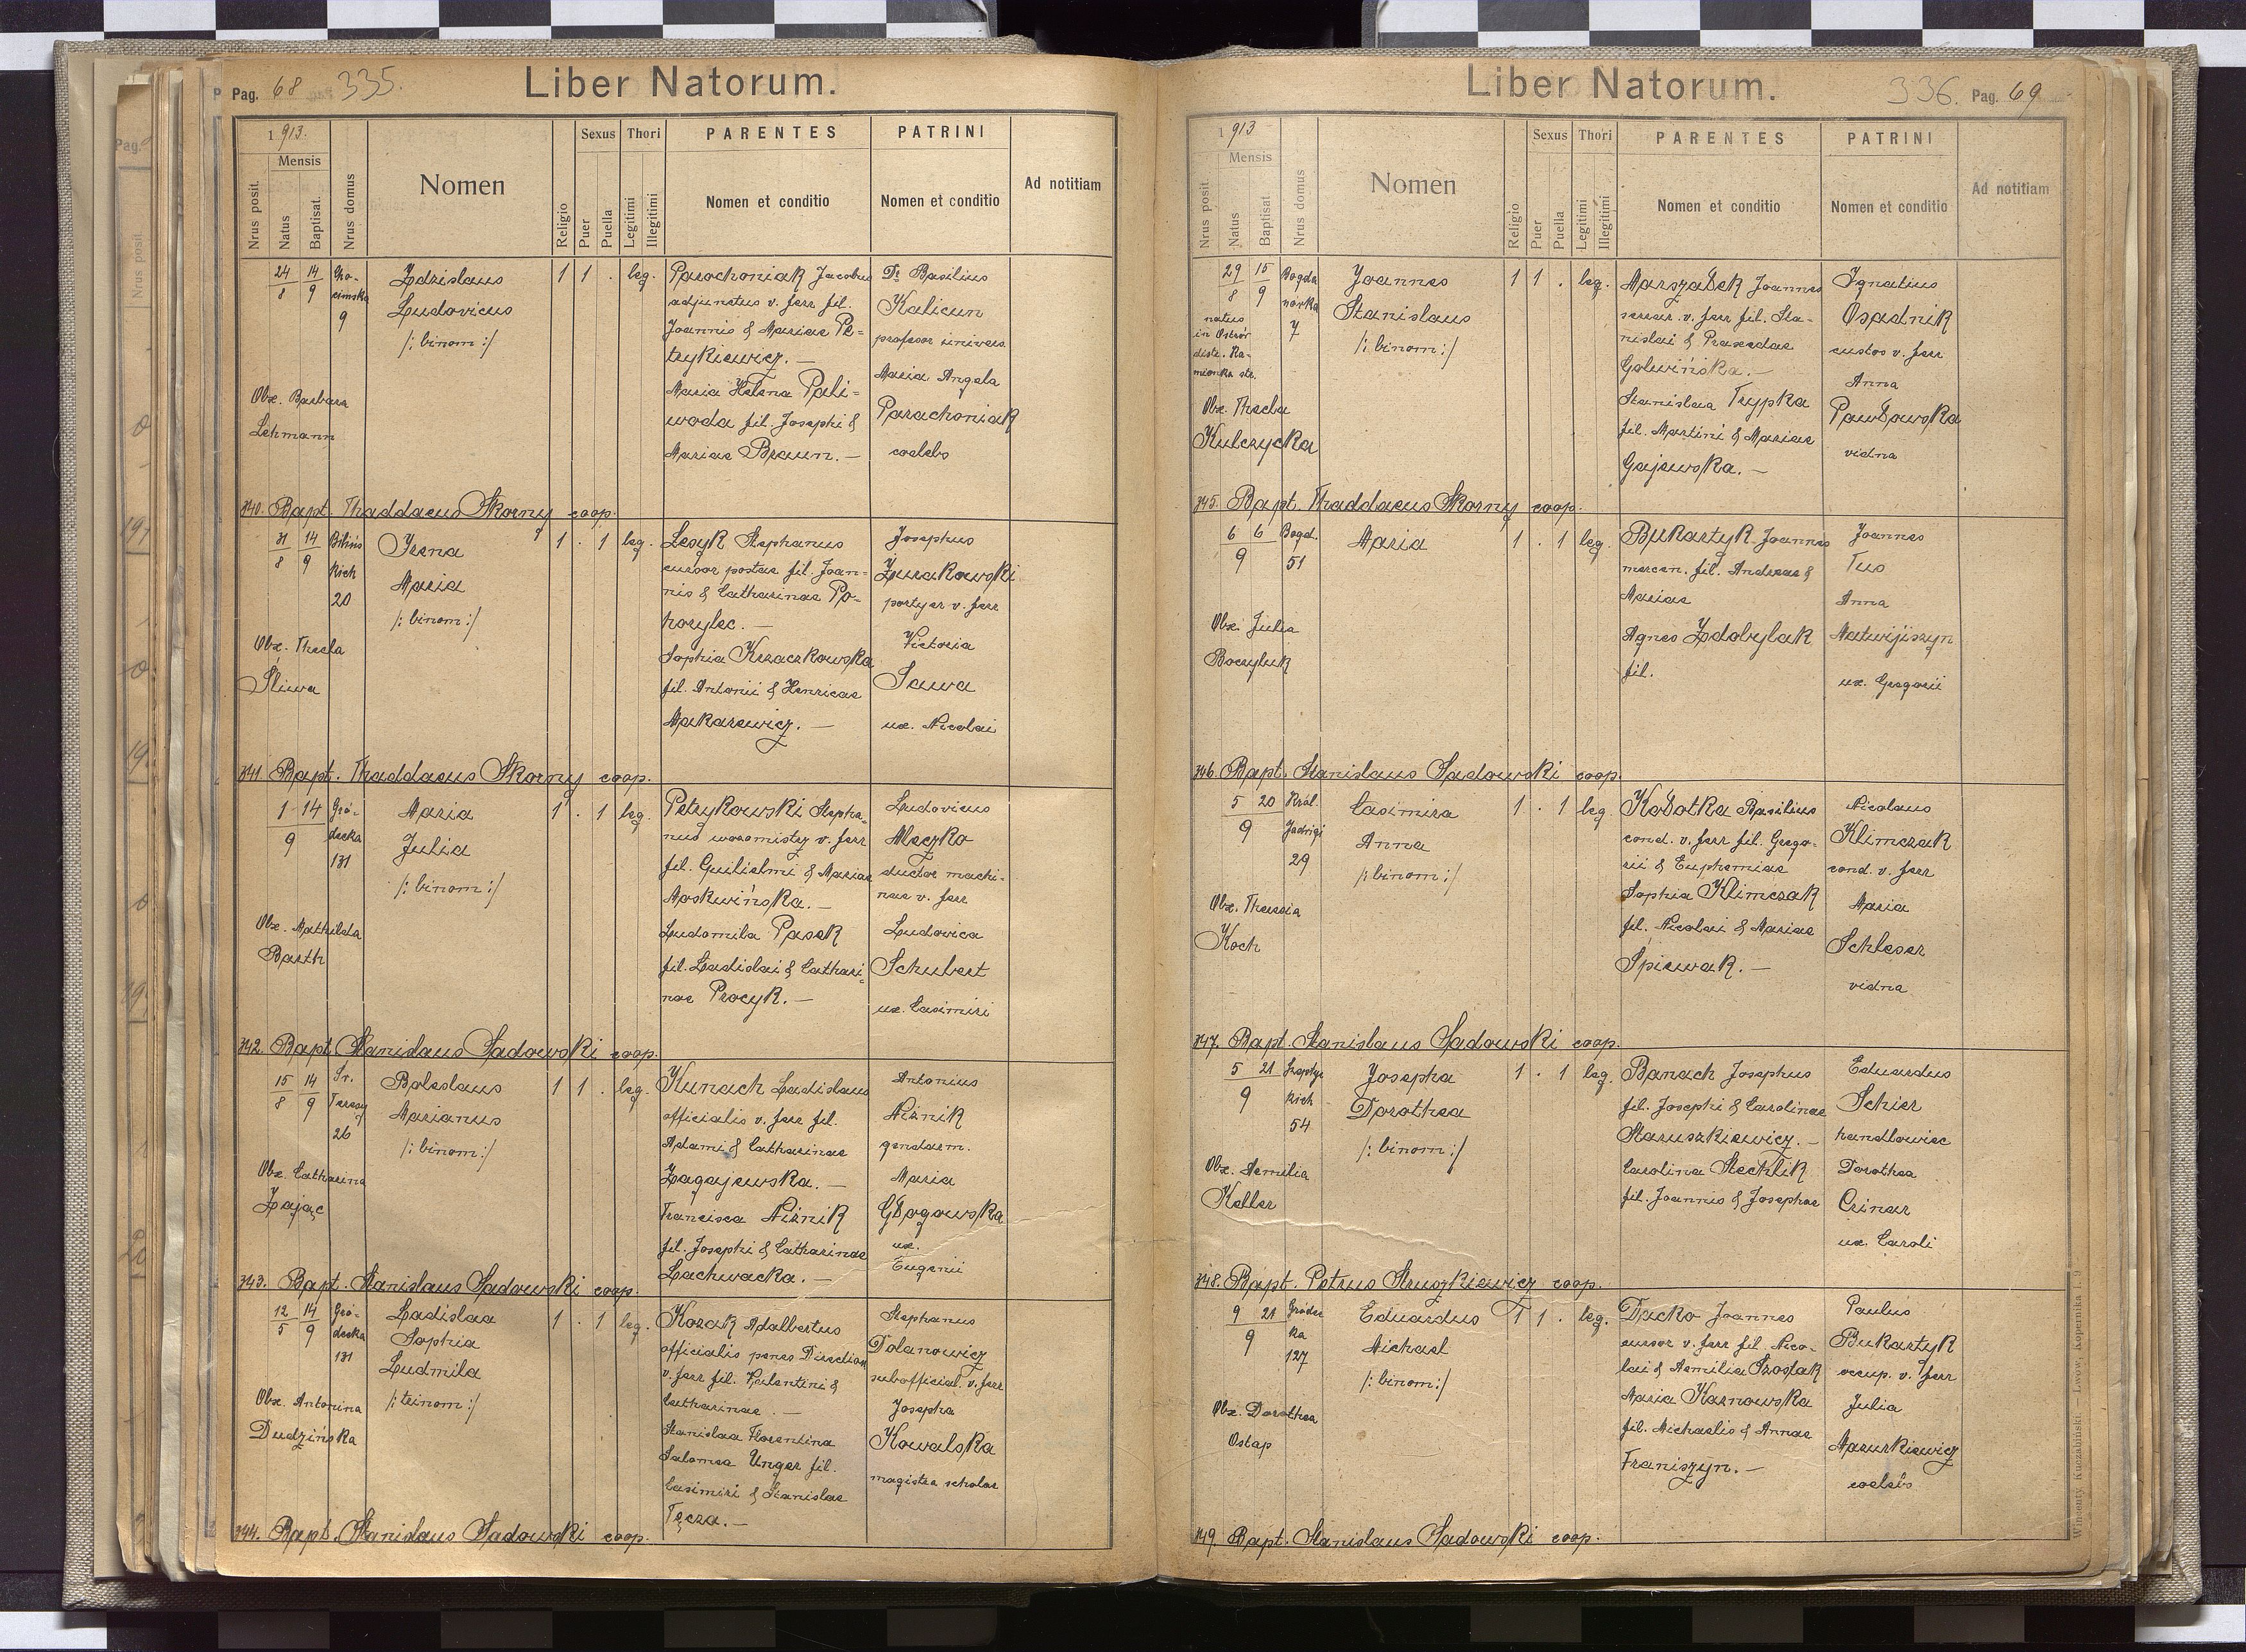 Pag. 68 335. Liber Natorum.
1913.
Mensis
Nrus posit.
Natus
Baptisat.
Nrus domus
Nomen
Religio
Sexus
Puer
Puella
Thori
Legitimi
Illegitimi
PARENTES
Nomen et conditio
PATRINI
Nomen et conditio
Ad notitiam
24/8 14/9
9
Zdzislaus
Ludovicus
/: binom :/
1 1 . leg.
Parachoniak Jacobus
adjunctus v. ferr fil.
Joannis & Mariae Pe-
trykiewicz. —
Maria Helena Pali-
woda fil. Josephi &
Mariae Braun. —
Dr Basilius
Kalicun
professor univers
Maria Angela
Parachoniak
coelebs
Obx. Barbara
Lehmann
340. Bapt. Thaddaeus Skorny coop.
31/8 14/9 Biliń-
kich
20
Irena
Maria
/: binom :/
1 . 1 leg.
Lesyk Stephanus
cursor postae fil. Joan-
nis & Catharinae Po-
horylec. —
Sophia Kraczkowska
fil. Antonii & Henricae
Makarewicz. —
Josephus
Żurakowski
portyer v. ferr
Victoria
Sawa
ux. Nicolai
Obx. Thecla
Śliwa
341. Bapt. Thaddaeus Skorny coop.
1 14
9
Gró-
decka
131
Maria
Julia
/: binom :/
1 . 1 leg.
Petrykowski Stepha-
nus wozomistrz v. ferr
fil. Guilielmi & Mariae
Moskwińska. —
Ludomila Pasek
fil. Ladislai & Cathari-
nae Procyk. —
Ludovicus
Mleczko
ductor machi-
nae v. ferr
Ludovica
Schubert
ux. Casimiri
Obx. Mathilda
Barth
342. Bapt. Stanislaus Sadowski coop.
15/8 14/9 Św.
Teresy
26
Boleslaus
Marianus
/: binom :/
1 1 . leg.
Kunach Ladislaus
officialis v. ferr fil.
Adami & Catharinae
Zagajewska. —
Francisca Niżnik
fil. Josephi & Catharinae
Lachwacka. —
Antonius
Niżnik
gendarm.
Maria
Głogowska
ux.
Eugenii
Obx. Catharina
Zając
343. Bapt. Stanislaus Sadowski coop.
12/5 14/9 Gró-
decka
131
Ladislaa
Sophia
Ludmila
/: trinom :/
1 . 1 leg.
Kozak Adalbertus
officialis penes Direction
v. ferr fil. Valentini &
Catharinae. —
Stanislaa Florentina
Salomea Unger fil.
Casimiri & Stanislae
Tęcza. —
Stephanus
Dolanowicz
subofficial. v. ferr
Josepha
Kowalska
magistra scholae
Obx. Antonina
Dudzińska
344. Bapt. Stanislaus Sadowski coop.
Liber Natorum. 336. Pag. 69
1913
Mensis
Nrus posit.
Natus
Baptisat
Nrus domus
Nomen
Religio
Sexus
Puer
Puella
Thori
Legitimi
Illegitimi
PARENTES
Nomen et conditio
PATRINI
Nomen et conditio
Ad notitiam
29/8 15/9 Bogda
nówka
7
natus
in Ostrów
distr. Ka-
mionka str.
Joannes
Stanislaus
/: binom :/
1 1 . leg.
Marszałek Joannes
serrar. v. ferr fil. Sta-
nislai & Praxedae
Golwińska. —
Stanislaa Trypka
fil. Martini & Mariae
Gajewska. —
Ignatius
Osadnik
custos v. ferr
Anna
Pawłowska
vidua
Obx. Thecla
Kulczycka
345. Bapt. Thaddaeus Skorny coop.
6 6 Bogd.
9 51
Maria
1 . 1 leg.
Bukartyk Joannes
mercen. fil. Andreae &
Mariae
Agnes Zdobylak
fil.
Joannes
Tus
Anna
Matwijiszyn
ux. Gregorii
Obx. Julia
Boczyluk
346. Bapt. Stanislaus Sadowski coop.
5 20 Król.
9 Jadwigi
29
Casimira
Anna
/: binom :/
1 . 1 leg.
Kołotka Basilius
cond. v. ferr fil. Grego-
rii & Euphemiae
Sophia Klimczak
fil. Nicolai & Mariae
Śpiewak. —
Nicolaus
Klimczak
cond. v. ferr
Maria
Schleser
vidua
Obx. Theresia
Koch
347. Bapt. Stanislaus Sadowski coop.
5 21 Szeptyc
9 kich
54
Josepha
Dorothea
/: binom :/
1 . 1 leg.
Banach Josephus
fil. Josephi & Carolinae
Staruszkiewicz. —
Carolina Stechlik
fil. Joannis & Josephae
Eduardus
Schier
handlowiec
Dorothea
Crinar
ux. Caroli
Obx. Aemilia
Keller
348. Bapt. Petrus Struszkiewicz coop.
9 21 Gródec
9 ka
127
Eduardus
Michael
/: binom :/
1 1 . leg.
Dacko Joannes
cursor v. ferr fil. Nico-
lai & Aemilia Szostak
Maria Karnowska
fil. Michaelis & Annae
Franiszyn. —
Paulus
Bukartyk
occup. v. ferr
Julia
Mazurkiewicz
coelebs
Obx. Dorothea
Ostap
349. Bapt. Stanislaus Sadowski coop.
Wincenty Kuczabiński. — Lwów, Kopernika 1. 9